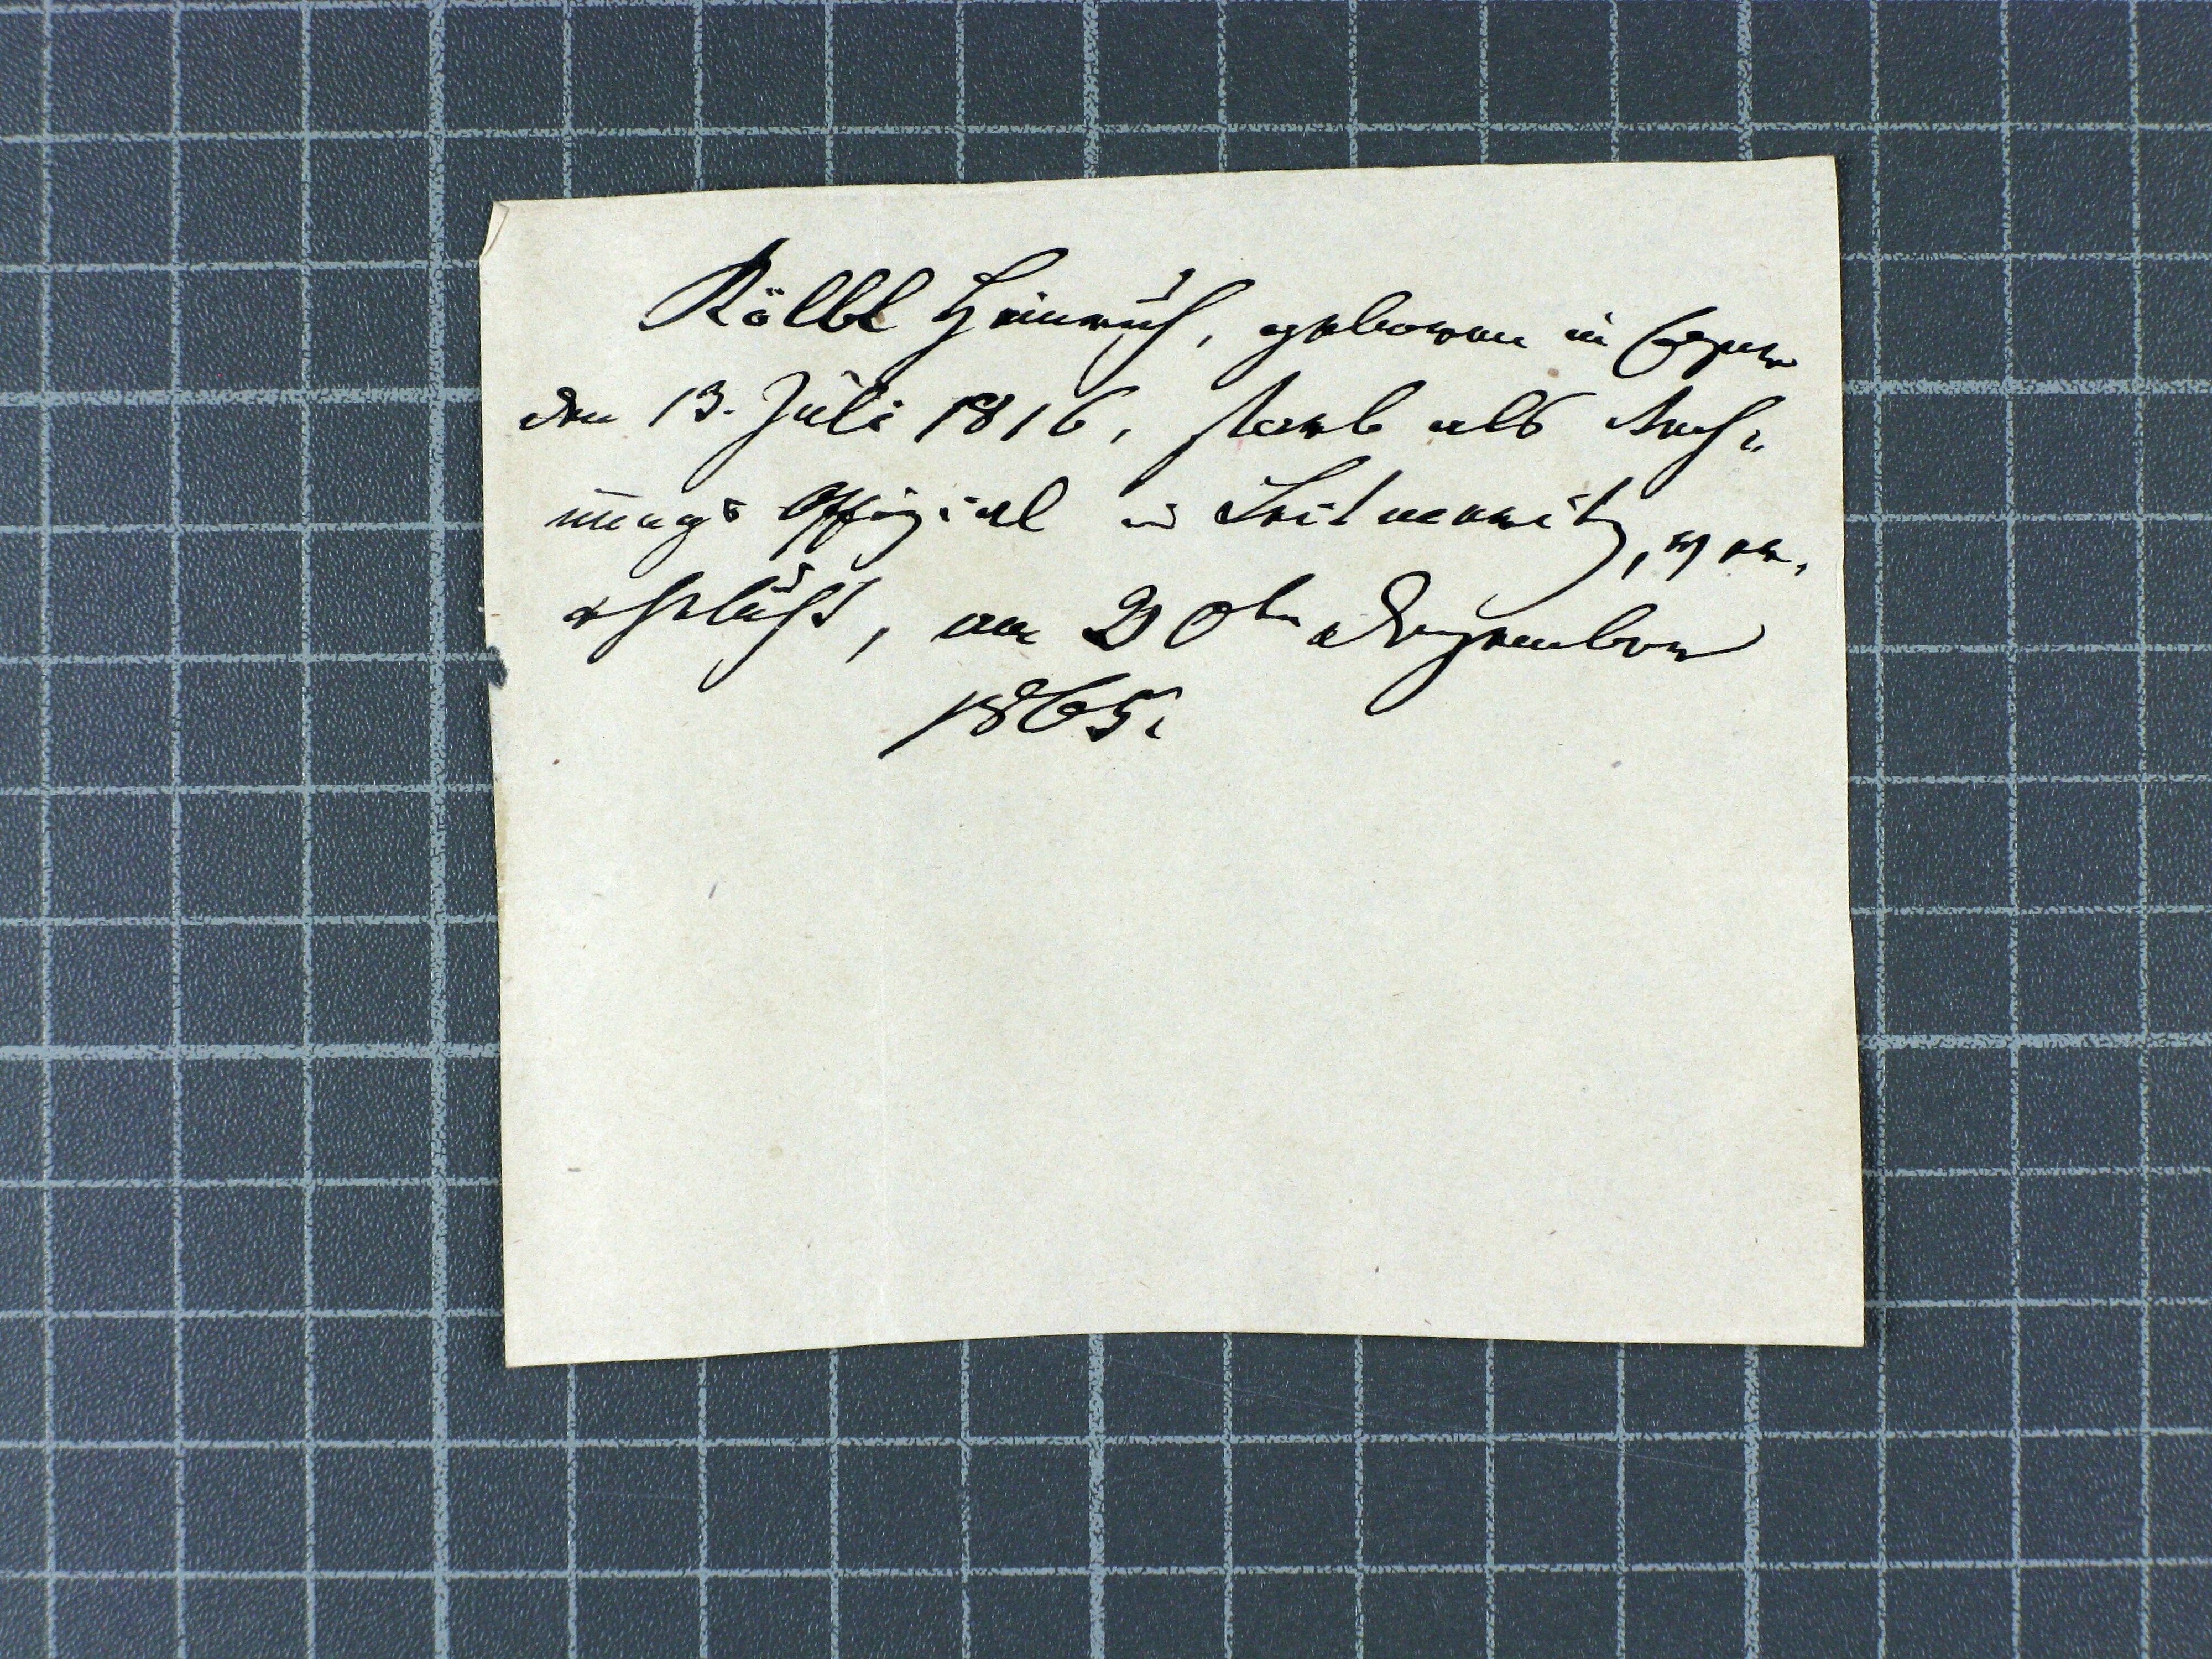 Kölbl Heinrich, geboren in Eger
den 13. Juli 1816, starb als Rech-
nungs Offizial in Leitmeritz, ver-
ehelicht, am 20ten Dezember
1865.